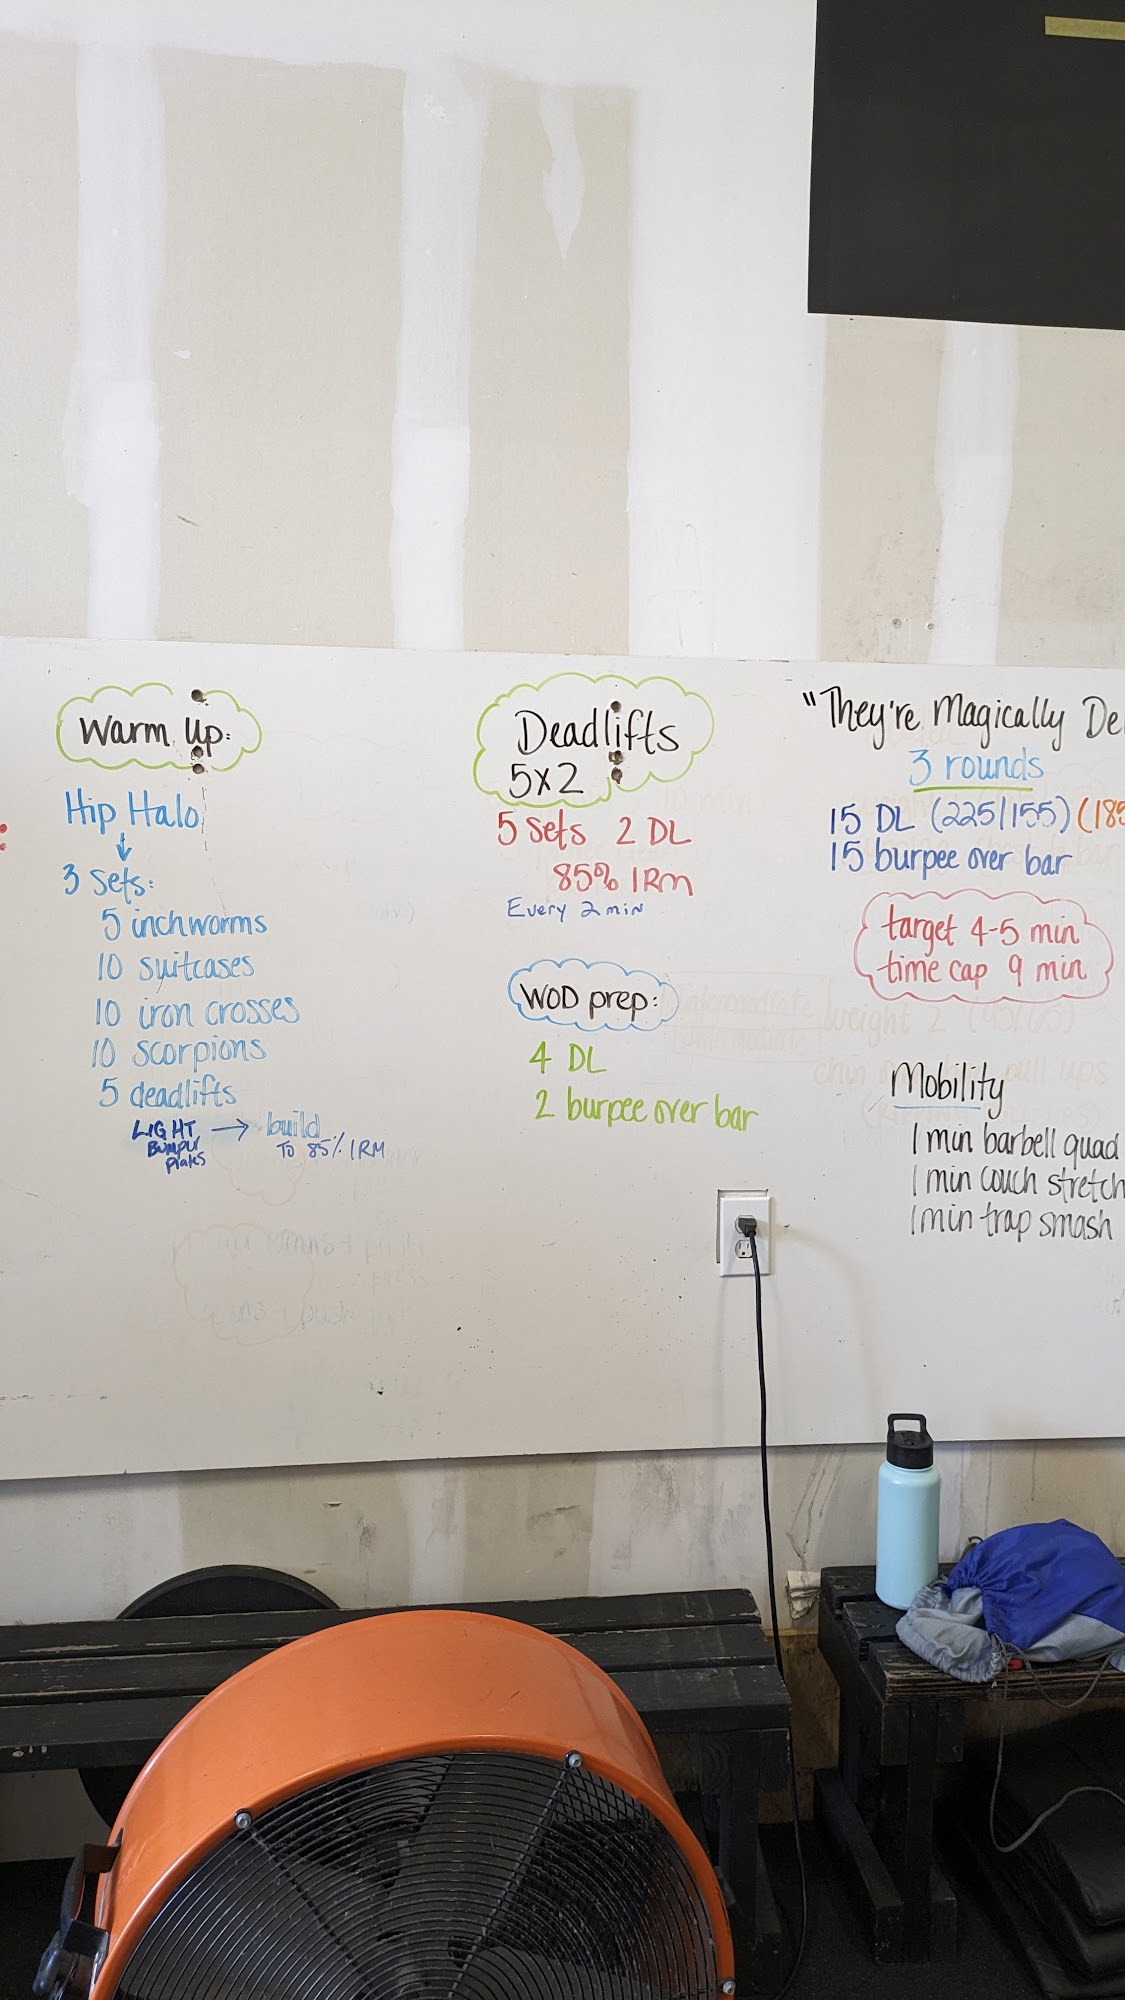 Warm Up:
Hip Halo
↓
3 Sets:
5 inchworms
10 suitcases
10 iron crosses
10 scorpions
5 deadlifts
LIGHT → build
Bumper
Plates
To 85% 1RM
Deadlifts
5x2
5 Sets 2 DL
85% 1RM
Every 2 min
WOD prep:
4 DL
2 burpee over bar
"They're Magically De
3 rounds
15 DL (225/155) (185
15 burpee over bar
target 4-5 min
time cap 9 min
Mobility
1 min barbell quad
1 min couch stretch
1 min trap smash